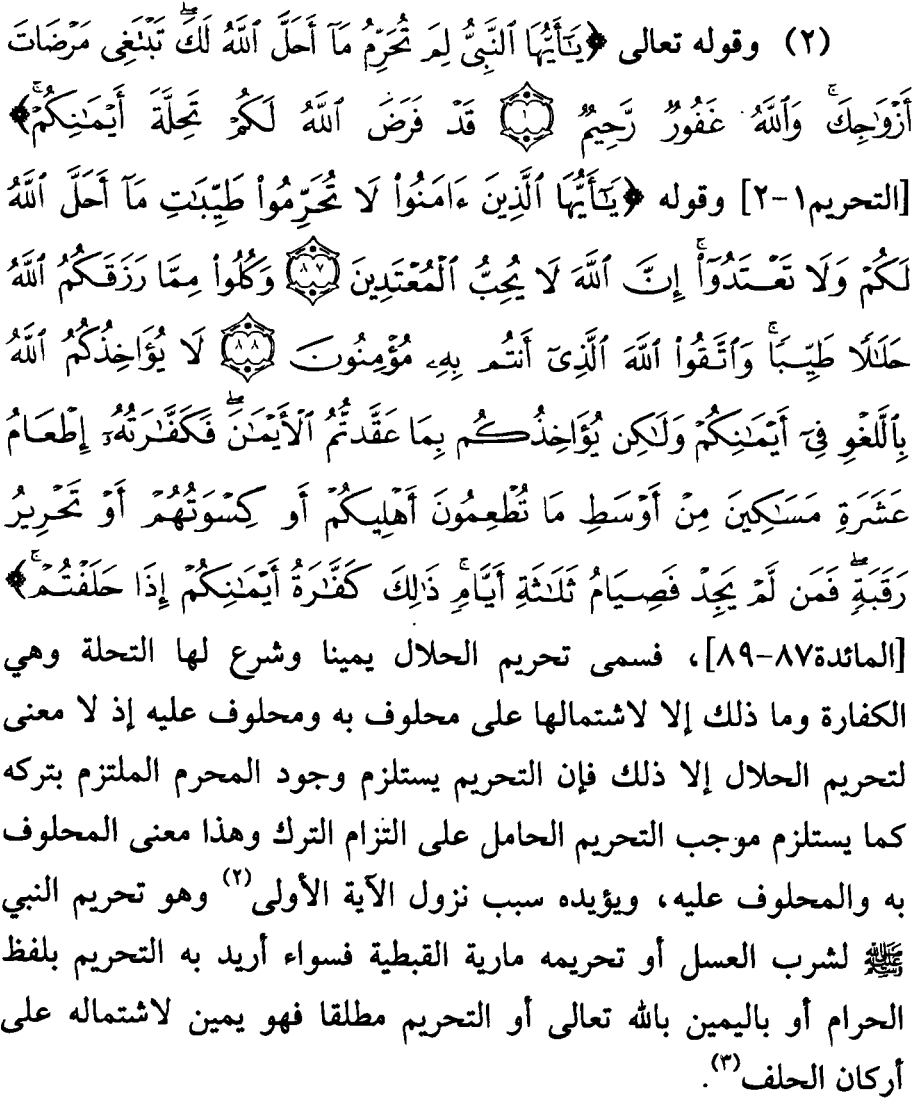 (٢) وقوله تعالى ﴿يَٰٓأَيُّهَا ٱلنَّبِىُّ لِمَ تُحَرِّمُ مَآ أَحَلَّ ٱللَّهُ لَكَۖ تَبْتَغِى مَرْضَاتَ
أَزْوَٰجِكَۚ وَٱللَّهُ غَفُورٌ رَّحِيمٌ ۝١ قَدْ فَرَضَ ٱللَّهُ لَكُمْ تَحِلَّةَ أَيْمَٰنِكُمْۚ﴾
[التحريم١-٢] وقوله ﴿يَٰٓأَيُّهَا ٱلَّذِينَ ءَامَنُوا۟ لَا تُحَرِّمُوا۟ طَيِّبَٰتِ مَآ أَحَلَّ ٱللَّهُ
لَكُمْ وَلَا تَعْتَدُوٓا۟ۚ إِنَّ ٱللَّهَ لَا يُحِبُّ ٱلْمُعْتَدِينَ ۝٨٧ وَكُلُوا۟ مِمَّا رَزَقَكُمُ ٱللَّهُ
حَلَٰلًا طَيِّبًاۚ وَٱتَّقُوا۟ ٱللَّهَ ٱلَّذِىٓ أَنتُم بِهِۦ مُؤْمِنُونَ ۝٨٨ لَا يُؤَاخِذُكُمُ ٱللَّهُ
بِٱللَّغْوِ فِىٓ أَيْمَٰنِكُمْ وَلَٰكِن يُؤَاخِذُكُم بِمَا عَقَّدتُّمُ ٱلْأَيْمَٰنَۖ فَكَفَّٰرَتُهُۥٓ إِطْعَامُ
عَشَرَةِ مَسَٰكِينَ مِنْ أَوْسَطِ مَا تُطْعِمُونَ أَهْلِيكُمْ أَوْ كِسْوَتُهُمْ أَوْ تَحْرِيرُ
رَقَبَةٍۖ فَمَن لَّمْ يَجِدْ فَصِيَامُ ثَلَٰثَةِ أَيَّامٍۚ ذَٰلِكَ كَفَّٰرَةُ أَيْمَٰنِكُمْ إِذَا حَلَفْتُمْۚ﴾
[المائدة٨٧-٨٩]، فسمى تحريم الحلال يمينا وشرع لها التحلة وهي
الكفارة وما ذلك إلا لاشتمالها على محلوف به ومحلوف عليه إذ لا معنى
لتحريم الحلال إلا ذلك فإن التحريم يستلزم وجود المحرم الملتزم بتركه
كما يستلزم موجب التحريم الحامل على التزام الترك وهذا معنى المحلوف
به والمحلوف عليه، ويؤيده سبب نزول الآية الأولى(٢) وهو تحريم النبي
ﷺ لشرب العسل أو تحريمه مارية القبطية فسواء أريد به التحريم بلفظ
الحرام أو باليمين بالله تعالى أو التحريم مطلقا فهو يمين لاشتماله على
أركان الحلف(٣).